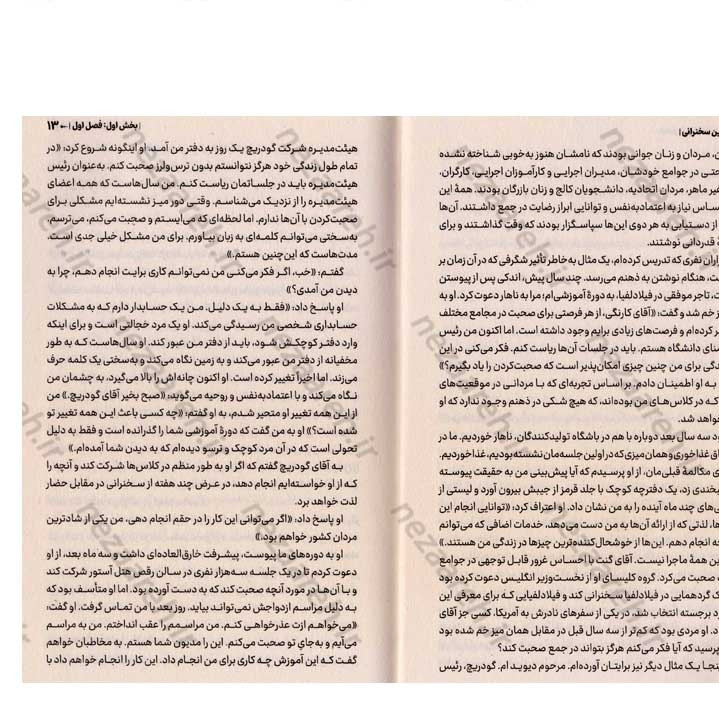 ن سخنرانی |
، مردان و زنان جوانی بودند که نامشان هنوز به‌خوبی شناخته نشده
حتی در جوامع خودشان، مدیران اجرایی و کارآموزان اجرایی، کارگران،
غیر ماهر، مردان اتحادیه، دانشجویان کالج و زنان بازرگان بودند. همهٔ این
ساس نیاز به اعتمادبه‌نفس و توانایی ابراز رضایت در جمع داشتند. آن‌ها
از دستیابی به هر دوی این‌ها سپاسگزار بودند که وقت گذاشتند و برای
قدردانی نوشتند.
زاران نفری که تدریس کرده‌ام، یک مثال به خاطر تأثیر شگرفی که در آن زمان بر
ت، هنگام نوشتن به ذهنم می‌رسد. چند سال پیش، اندکی پس از پیوستن
، تاجر موفقی در فیلادلفیا، به دورهٔ آموزشی‌ام؛ مرا به ناهار دعوت کرد. او به
ز خم شد و گفت: «آقای کارنگی، از هر فرصتی برای صحبت در مجامع مختلف
ر کرده‌ام و فرصت‌های زیادی برایم وجود داشته است. اما اکنون من رئیس
منای دانشگاه هستم. باید در جلسات آن‌ها ریاست کنم. فکر می‌کنی در این
دگی برای من چنین چیزی امکان‌پذیر است که صحبت‌کردن را یاد بگیرم؟»
به او اطمینان دادم. بر اساس تجربه‌ای که با مردانی در موقعیت‌های
که در کلاس‌های من بوده‌اند، که هیچ شکی در ذهنم وجود ندارد که او
خواهد شد.
ود سه سال بعد دوباره با هم در باشگاه تولیدکنندگان، ناهار خوردیم. ما در
اق غذاخوری و همان میزی که در اولین جلسه‌مان نشسته بودیم، غذا خوردیم.
ی مکالمهٔ قبلی‌مان، از او پرسیدم که آیا پیش‌بینی من به حقیقت پیوسته
بخندی زد، یک دفترچه کوچک با جلد قرمز از جیبش بیرون آورد و لیستی از
ی‌های چند ماه آینده را به من نشان داد. او اعتراف کرد: «توانایی انجام این
ها، لذتی که از ارائه آن‌ها به من دست می‌دهد، خدمات اضافی که می‌توانم
عه انجام دهم. این‌ها از خوشحال‌کننده‌ترین چیزها در زندگی من هستند.»
ین همهٔ ماجرا نیست. آقای گنت با احساس غرور قابل توجهی در جوامع
ت صحبت می‌کرد. گروه کلیسای او از نخست‌وزیر انگلیس دعوت کرده بود
ک گردهمایی در فیلادلفیا سخنرانی کند و فیلادلفیایی که برای معرفی این
رد برجسته انتخاب شد، در یکی از سفرهای نادرش به آمریکا، کسی جز آقای
. او مردی بود که کم‌تر از سه سال قبل در مقابل همان میز خم شده بود
پرسید که آیا فکر می‌کنم هرگز بتواند در جمع صحبت کند؟
ینجا یک مثال دیگر نیز برایتان آورده‌ام. مرحوم دیوید ام. گودریچ، رئیس
| بخش اول: فصل اول | ← ۱۳
هیئت‌مدیره شرکت گودریچ یک روز به دفتر من آمد. او این‌گونه شروع کرد: «در
تمام طول زندگی خود هرگز نتوانستم بدون ترس‌ولرز صحبت کنم. به‌عنوان رئیس
هیئت‌مدیره باید در جلساتمان ریاست کنم. من سال‌هاست که همه اعضای
هیئت‌مدیره را از نزدیک می‌شناسم. وقتی دور میز نشسته‌ایم مشکلی برای
صحبت‌کردن با آن‌ها ندارم. اما لحظه‌ای که می‌ایستم و صحبت می‌کنم، می‌ترسم.
به‌سختی می‌توانم کلمه‌ای به زبان بیاورم. برای من مشکل خیلی جدی است.
مدت‌هاست که این‌چنین هستم.»
گفتم: «خب، اگر فکر می‌کنی من نمی‌توانم کاری برایت انجام دهم، چرا به
دیدن من آمدی؟»
او پاسخ داد: «فقط به یک دلیل. من یک حسابدار دارم که به مشکلات
حسابداری شخصی من رسیدگی می‌کند. او یک مرد خجالتی است و برای اینکه
وارد دفتر کوچکش شود، باید از دفتر من عبور کند. او سال‌هاست که به طور
مخفیانه از دفتر من عبور می‌کند و به زمین نگاه می‌کند و به‌سختی یک کلمه حرف
می‌زند. اما اخیراً تغییر کرده است. او اکنون چانه‌اش را بالا می‌گیرد، به چشمان من
نگاه می‌کند و با اعتمادبه‌نفس و روحیه می‌گوید: «صبح بخیر آقای گودریچ.» من
از این همه تغییر او متحیر شدم، به او گفتم: «چه کسی باعث این همه تغییر تو
شده است؟» او به من گفت که دورهٔ آموزشی شما را گذرانده است و فقط به دلیل
تحولی است که در آن مرد کوچک و ترسو دیده‌ام که به دیدن شما آمده‌ام.»
به آقای گودریچ گفتم که اگر او به طور منظم در کلاس‌ها شرکت کند و آنچه را
که از او خواسته‌ایم انجام دهد، در عرض چند هفته از سخنرانی در مقابل حضار
لذت خواهد برد.
او پاسخ داد: «اگر می‌توانی این کار را در حقم انجام دهی، من یکی از شادترین
مردان کشور خواهم بود.»
او به دوره‌های ما پیوست، پیشرفت خارق‌العاده‌ای داشت و سه ماه بعد، از او
دعوت کردم تا در یک جلسه سه‌هزار نفری در سالن رقص هتل آستور شرکت کند
و با آن‌ها در مورد آنچه صحبت کند که به دست آورده بود. اما او متأسف بود که
به دلیل مراسم ازدواجش نمی‌تواند بیاید. روز بعد با من تماس گرفت. او گفت:
«می‌خواهم ازت عذرخواهی کنم. من مراسمم را عقب انداختم. من به مراسم
می‌آیم و به‌جای تو صحبت می‌کنم. این را مدیون شما هستم. به مخاطبان خواهم
گفت که این آموزش چه کاری برای من انجام داد. این کار را انجام خواهم داد با